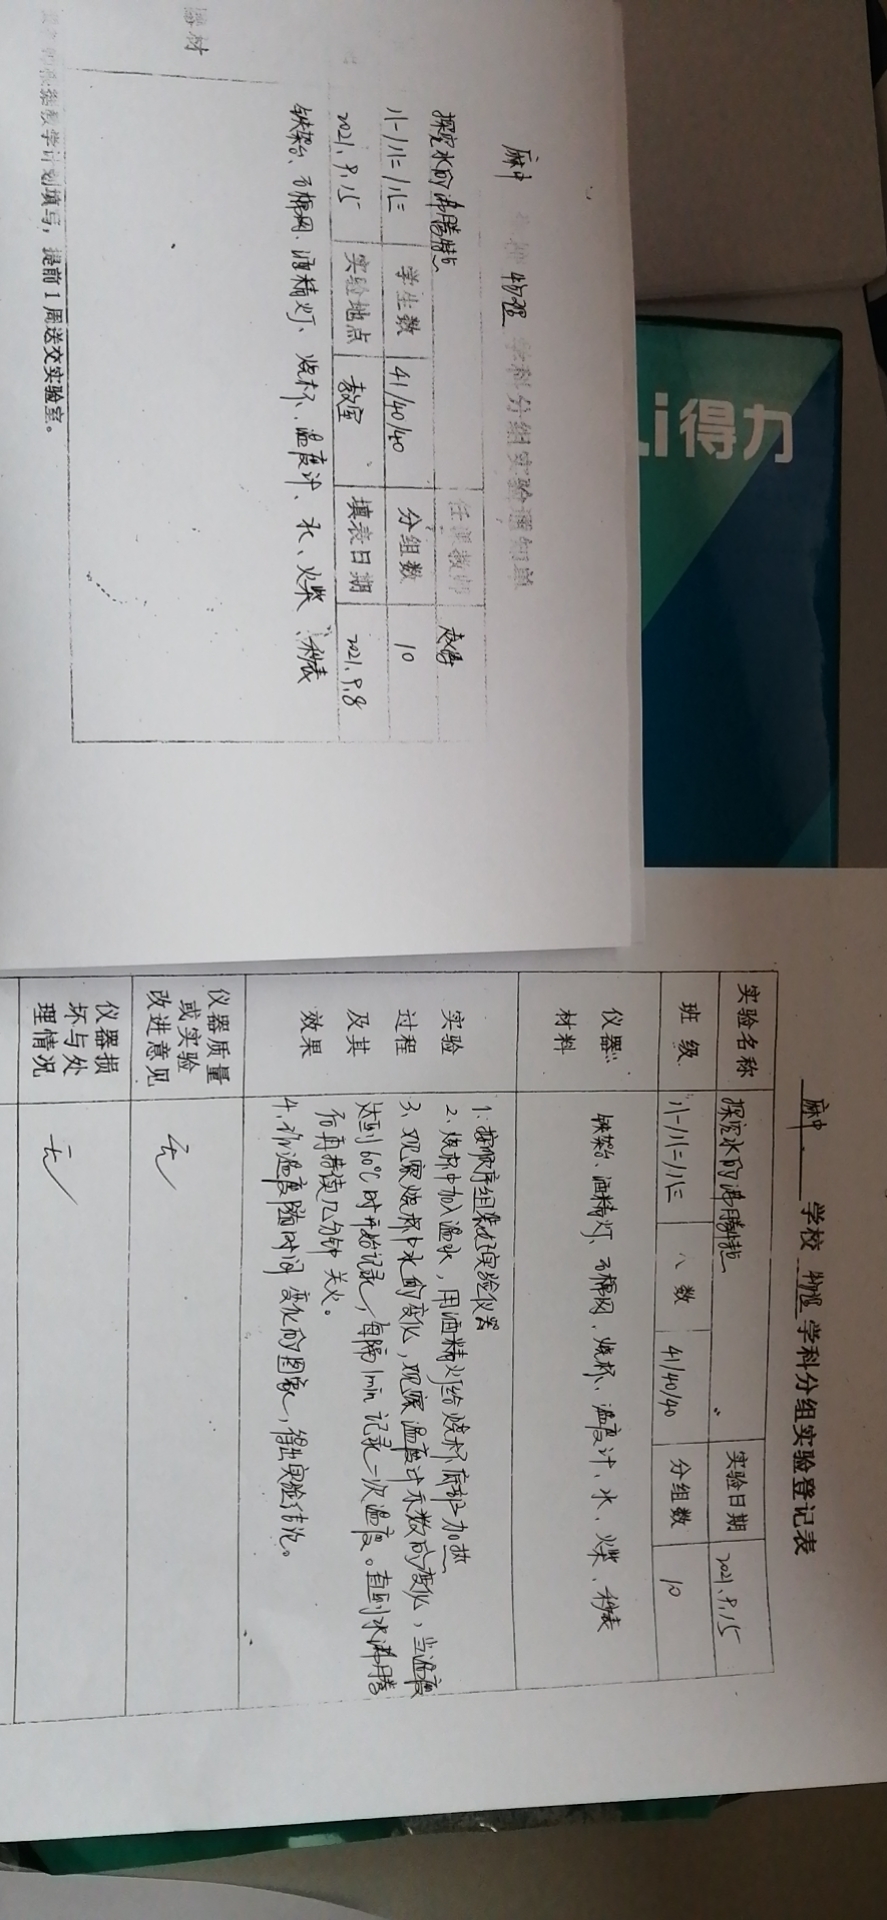 麻中 物理 学科分组实验通知单
探究水的沸腾特点 任课教师
八一/八二/八三 学生数 41/40/40 分组数 10
2021.9.15 实验地点 教室 填表日期 2021.9.8
铁架台、石棉网、酒精灯、烧杯、温度计、水、火柴、秒表
器材
教学计划填写，提前1周送交实验室。
得力
麻中 学校 物理 学科分组实验登记表
实验名称 探究水的沸腾特点 实验日期 2021.9.15
班级 八一/八二/八三 人数 41/40/40 分组数 10
仪器材料 铁架台、酒精灯、石棉网、烧杯、温度计、水、火柴、秒表
实验过程及其效果
1.按顺序组装好实验仪器
2.烧杯中加入温水，用酒精灯给烧杯底部加热
3.观察烧杯中水的变化，观察温度计示数的变化，当温度
达到60℃时开始记录，每隔1min记录一次温度。直到水沸腾
后再持续几分钟关火。
4.作温度随时间变化的图象，得出实验结论。
仪器质量或实验改进意见 无
仪器损坏与处理情况 无